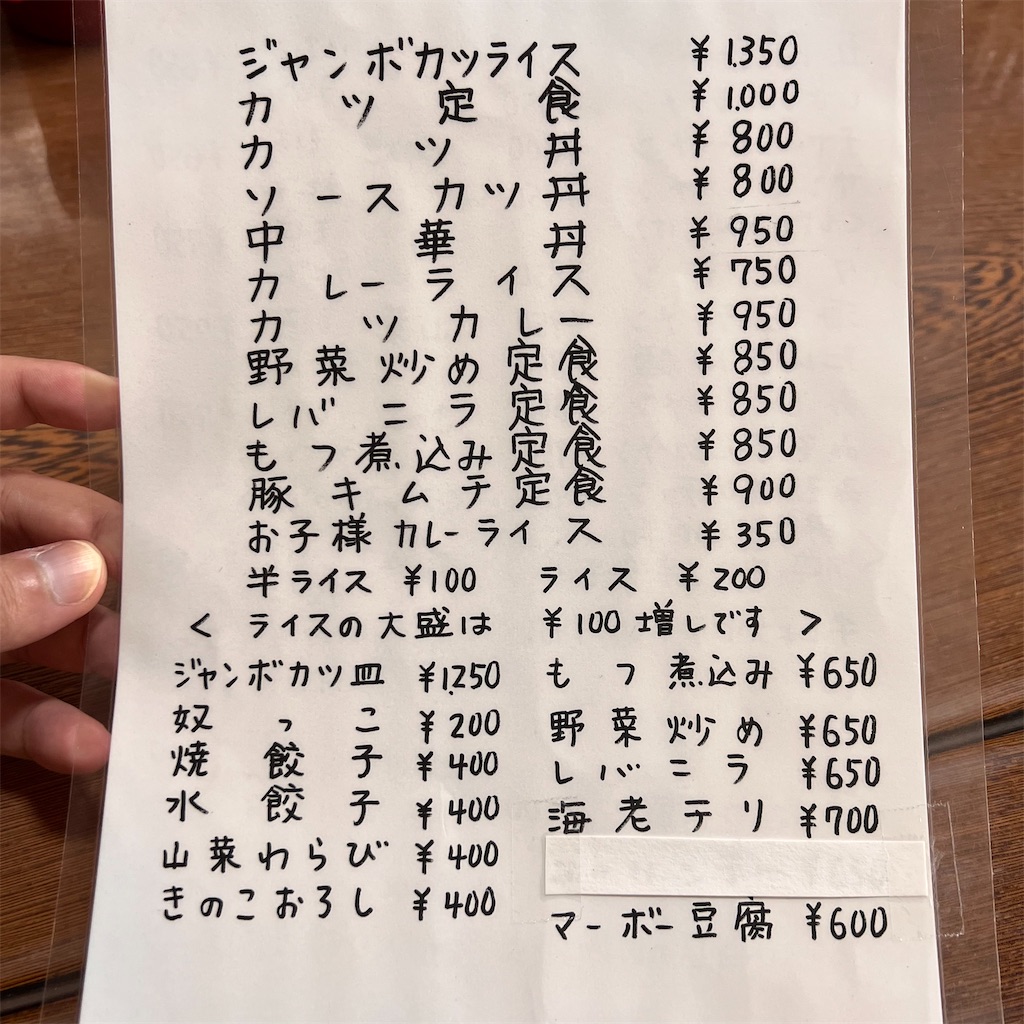 ジャンボカツライス ¥1.350
カツ定食 ¥1.000
カツ丼 ¥800
ソースカツ丼 ¥800
中華丼 ¥950
カレーライス ¥750
カツカレー ¥950
野菜炒め定食 ¥850
レバニラ定食 ¥850
もつ煮込み定食 ¥850
豚キムチ定食 ¥900
お子様カレーライス ¥350
半ライス ¥100 ライス ¥200
< ライスの大盛は ¥100増しです >
ジャンボカツ皿 ¥1.250 もつ煮込み ¥650
奴っこ ¥200 野菜炒め ¥650
焼餃子 ¥400 レバニラ ¥650
水餃子 ¥400 海老テリ ¥700
山菜わらび ¥400
きのこおろし ¥400 マーボー豆腐 ¥600